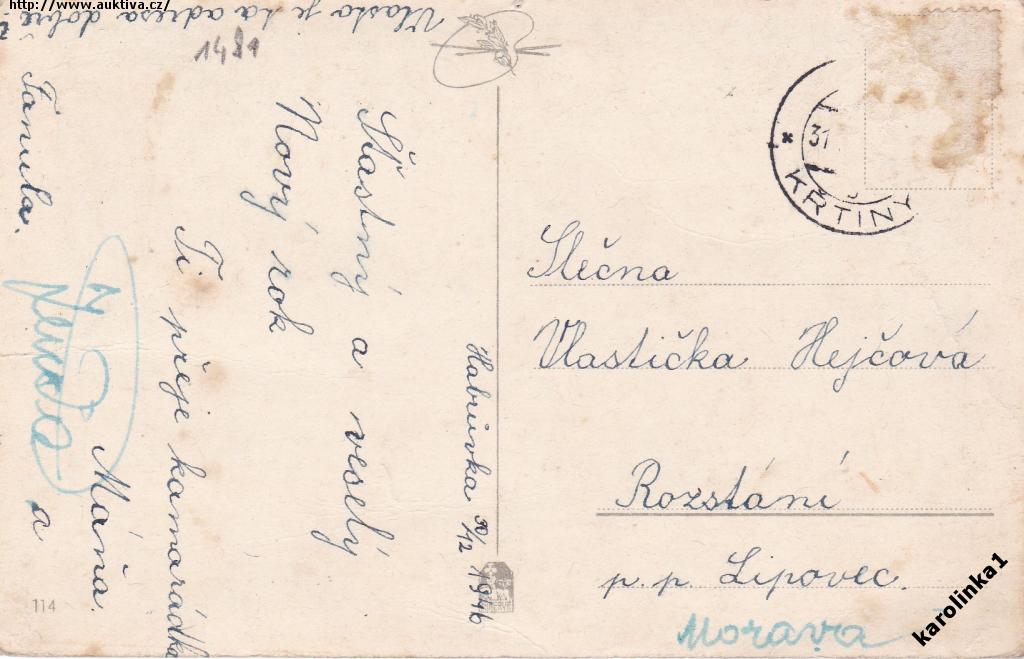 http://www.auktiva.cz/
Vlasto je ta adresa dobře
1481
Šťastný a veselý
Nový rok
Ti přeje kamarádka
Máňa.
a
Fanula.
Habrůvka 30/12 1946
31.
KŘTINY
Slečna
Vlastička Hejčová
Rozstání
p. p. Lipovec.
Morava
114
karolinka1